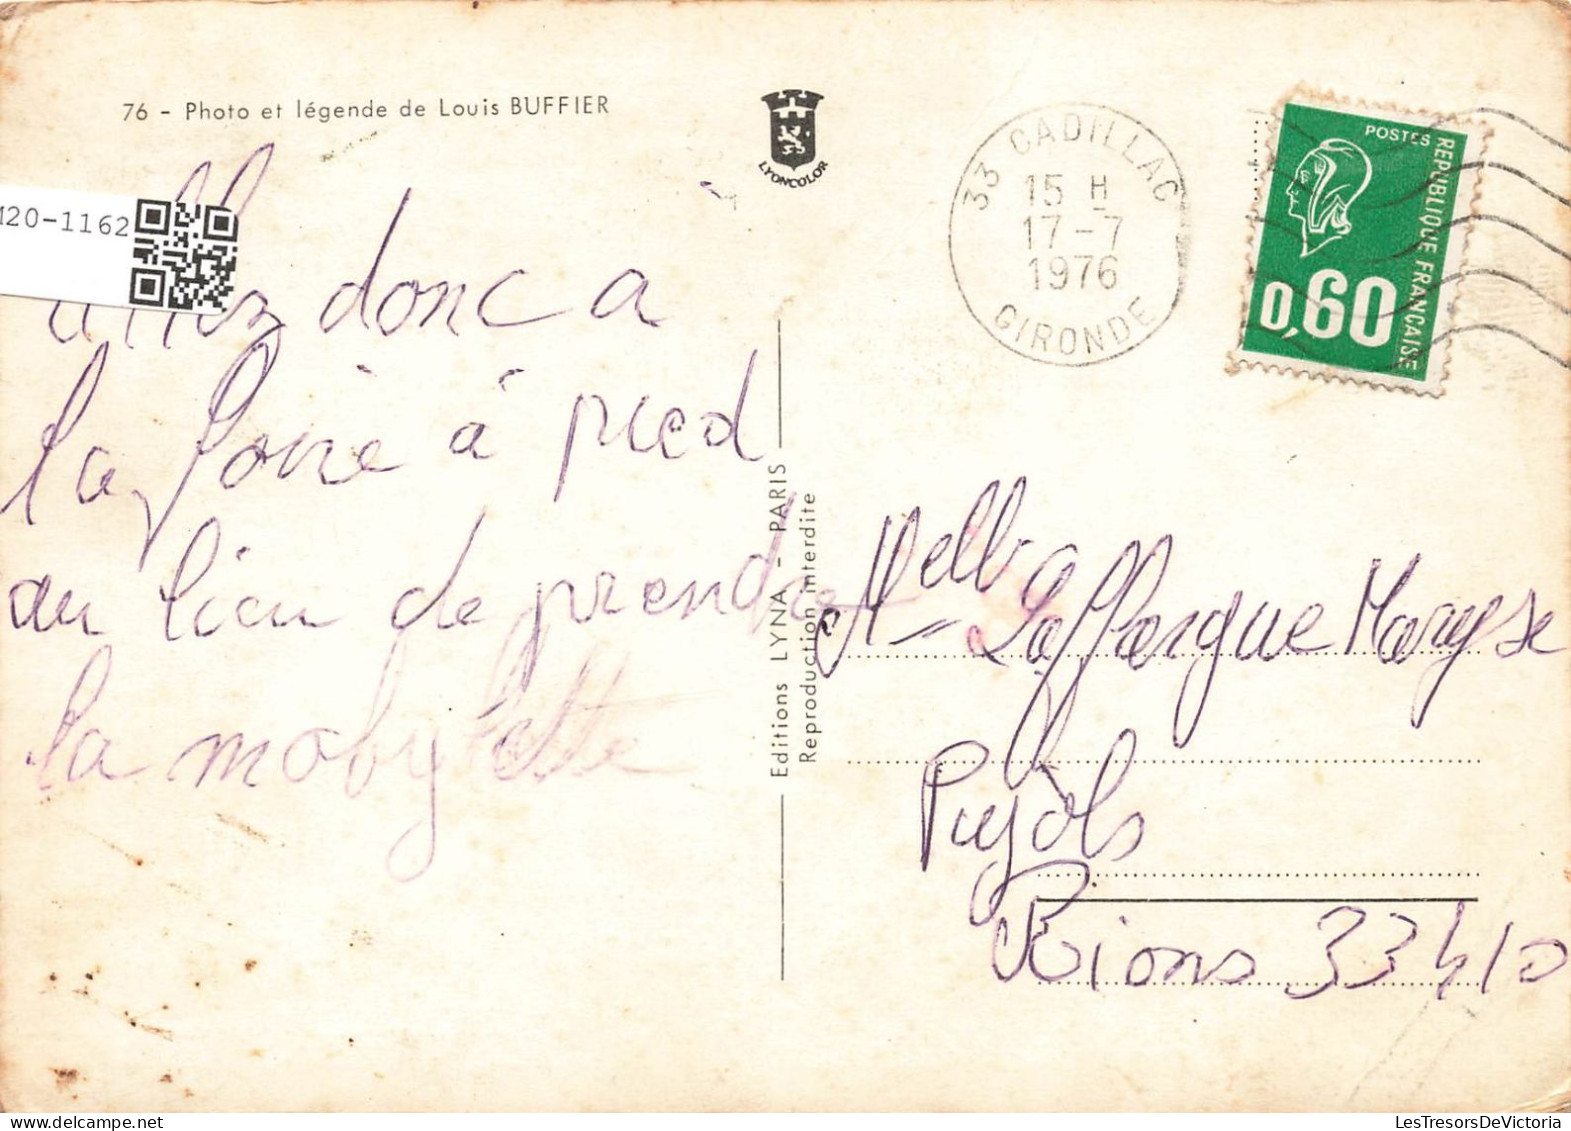 76 - Photo et légende de Louis BUFFIER
LYONCOLOR
33 CADILLAC
15 H
17-7
1976
GIRONDE
POSTES
REPUBLIQUE FRANCAISE
0,60
120-1162
allez donc a
la foire à pied
au lieu de prendre
la mobylette
Editions LYNA - PARIS
Reproduction interdite
Melle Laffargue Maryse
Pujols
Rions 33410
LesTresorsDeVictoria